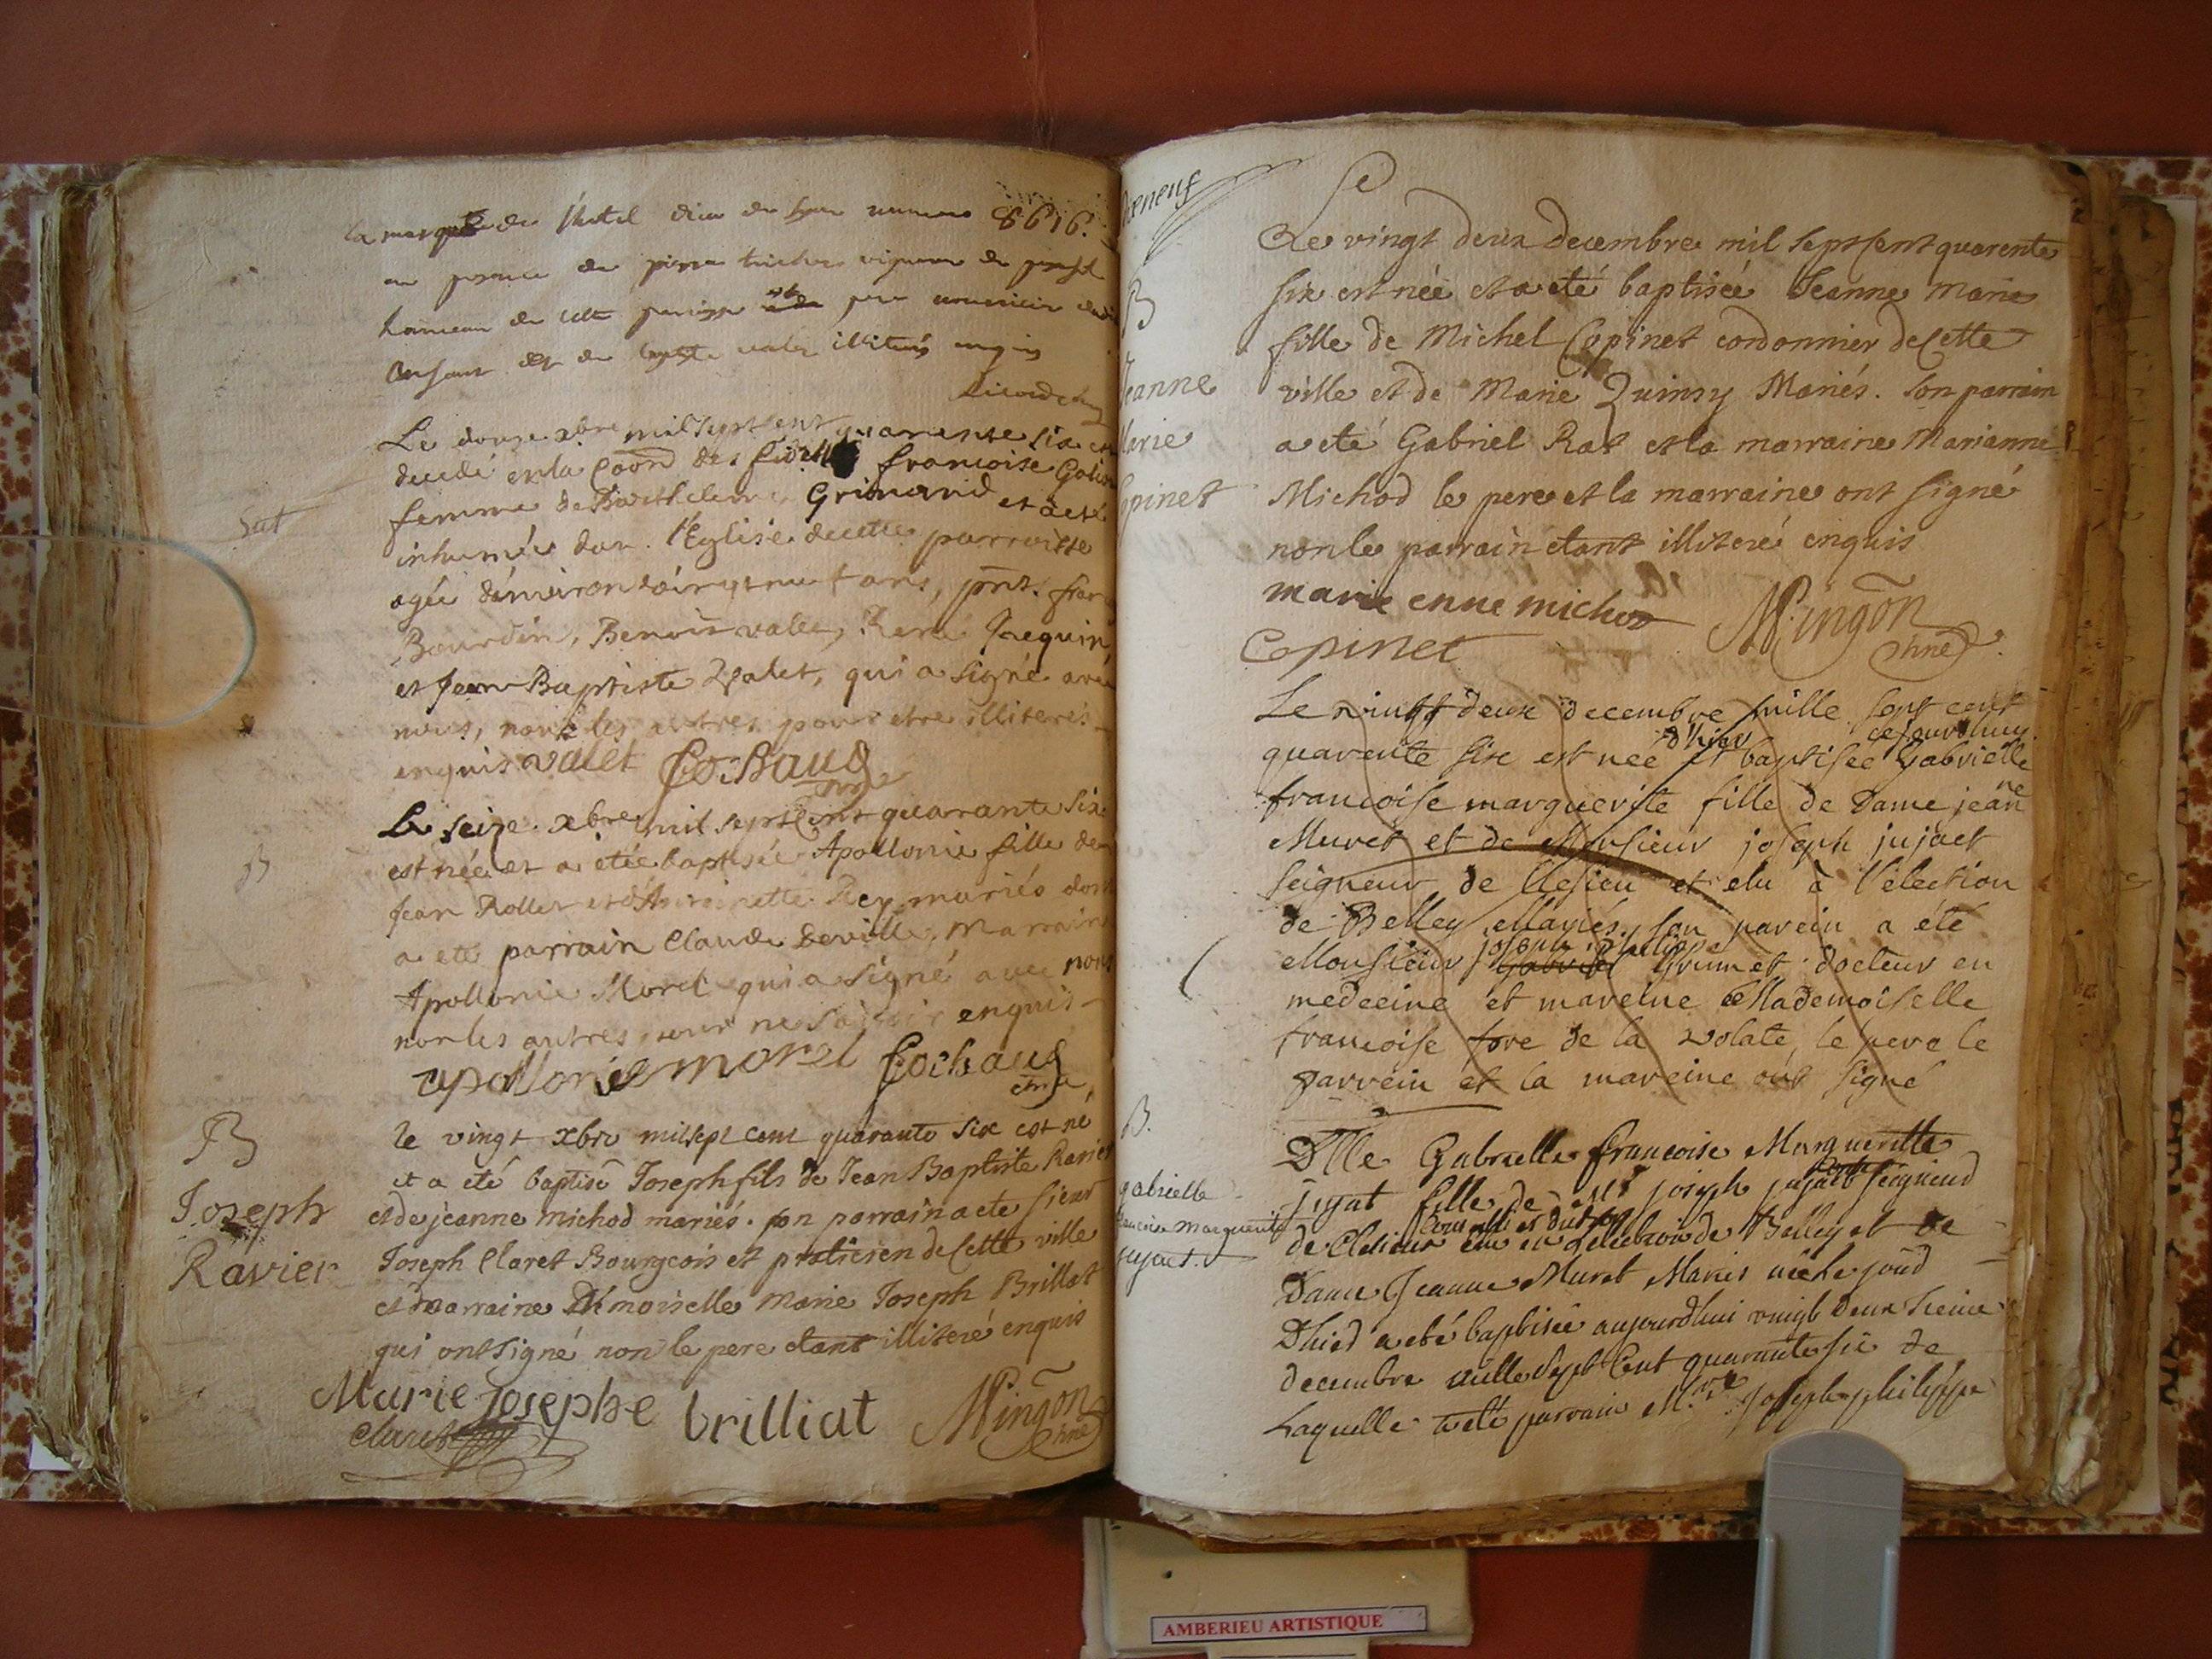 la marque de l'hotel dieu de numero 8616.
en presence de pierre vigneron de
hameau de cette paroisse
Enfant et de illiterés enquis
Le douze xbre mil sept cent quarante six est
decedé en la Coon des françoise
femme de Barthelemy Grimand et a eté
Sat
inhumée dan. l'Eglise de cette parroisse
agée d'environ ans, pnt. fran
Bourdin, Benoit vallet, René Jacquin
et Jean Baptiste Valet, qui a signé avec
nous, non les autres pour etre illiterés
enquis valet Cochaud
Le seize xbre mil sept cent quarante six
B
est née et a etée baptisée Apollonie fille de
Jean Rollet et d'Antoinette Rey mariés dont
a eté parrain Claude Deville, Marraine
Apollonie Morel qui a signé avec nous
non les autres pour ne savoir enquis
apollonie morel Cochaud
B
Joseph
Ravier
le vingt xbre mil sept cent quarante six est né
et a été baptisé Joseph fils de Jean Baptiste Ravier
et de jeanne michod mariés. son parrain a ete sieur
Joseph Claret Bourgeois et praticien de Cette ville
et marraine Dlle moiselle Marie Joseph Brillat
qui ont signé non le pere etant illiteré enquis
Marie Josephe brilliat Mingon
Claret
neuf
Le vingt deux decembre mil sept cent quarente
B
Jeanne
Marie
Copinet
six est née et a eté baptisée Jeanne Marie
fille de Michel Copinet cordonnier de Cette
ville et de Marie Quinsy Mariés. Son parrain
a eté Gabriel Rat et la marraine Marianne
Michod le pere et la marraine ont signé
non le parrain etant illiteré enquis
marie enne michod Mingon
Copinet
Le vingt deux decembre mille sept cent
d'hier ce jourdhuy
quarente six est née et baptisée Gabrielle
francoise marguerite fille de Dame jeanne
Muret et de Monsieur joseph jujaet
seigneur de Clesieu et elu à l'election
de Belley Mariés, son parein a été
joseph philippe
Monsieur Gabriel Grumet docteur en
medecine et mareine Mademoiselle
francoise fore de la volate, le pere le
parrein et la mareine ont signé
B.
gabrielle
francoise marguerite
jujact.
Dlle Gabrielle francoise Margueritte
jujat fille de Mr joseph jujact seigneur
de Clesieux elu en Lelection de Belley et de
Dame Jeanne Muret Mariés née le jour
Dhier a eté baptisée aujourdhui vingt deuxsieme
decembre mille Sept Cent quarante six de
Laquelle a eté parrain Mre Joseph philippe
AMBERIEU ARTISTIQUE